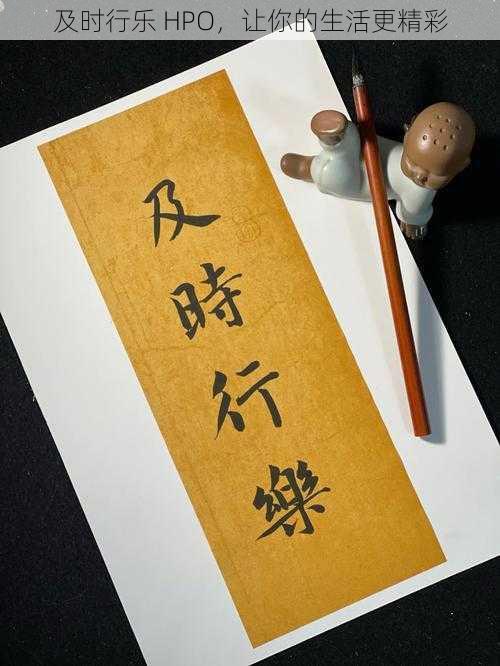 及时行乐 HPO，让你的生活更精彩
及
時
行
樂